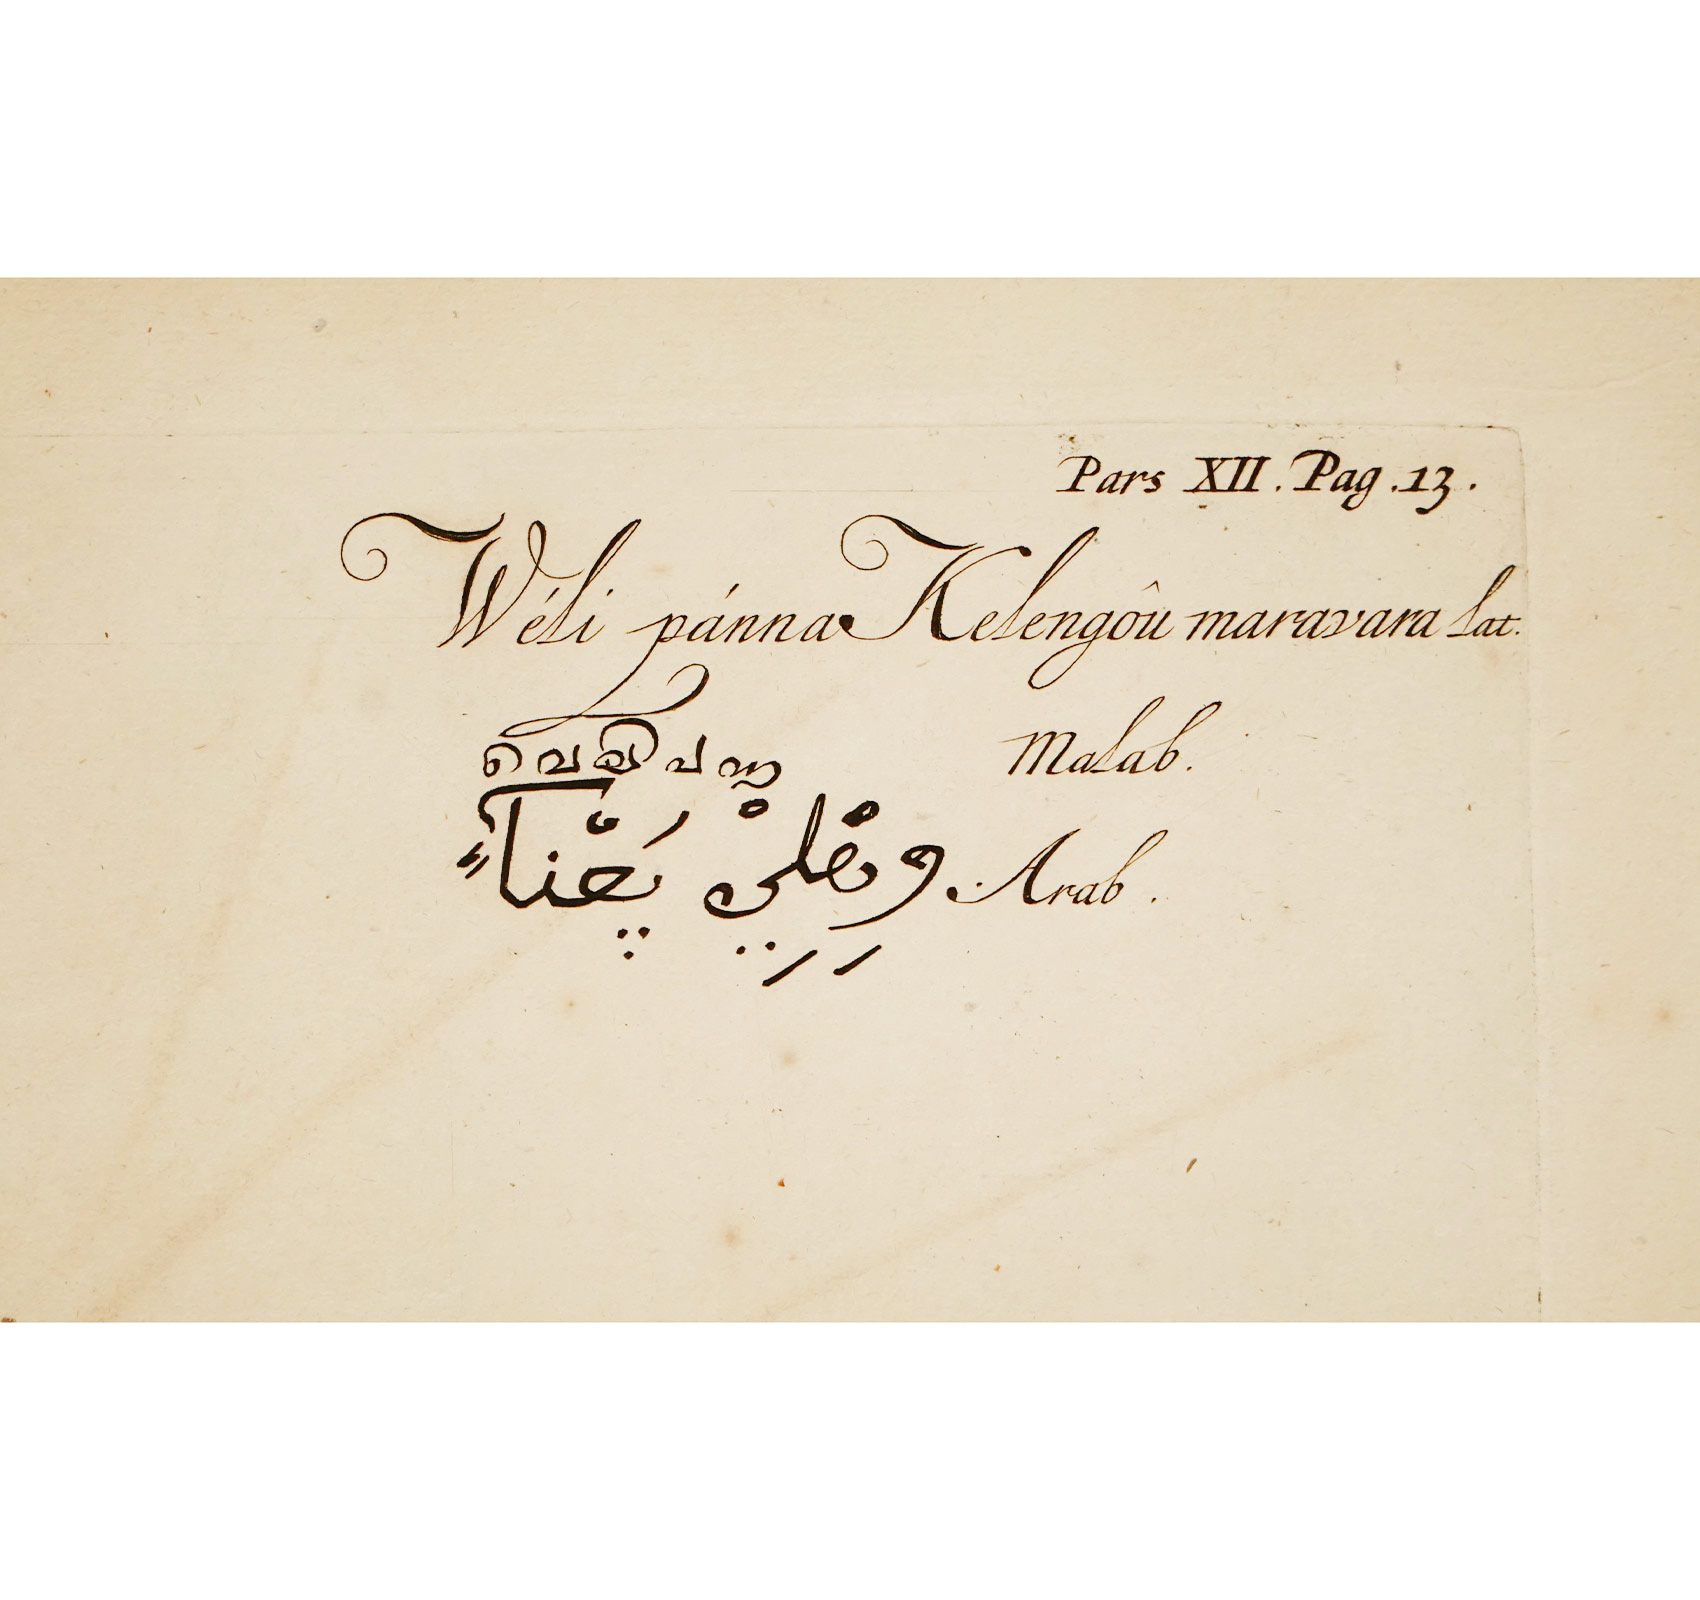 Pars XII. Pag. 13.
Wéli pánna Kelengôu maravara lat.
Malab.
Arab.